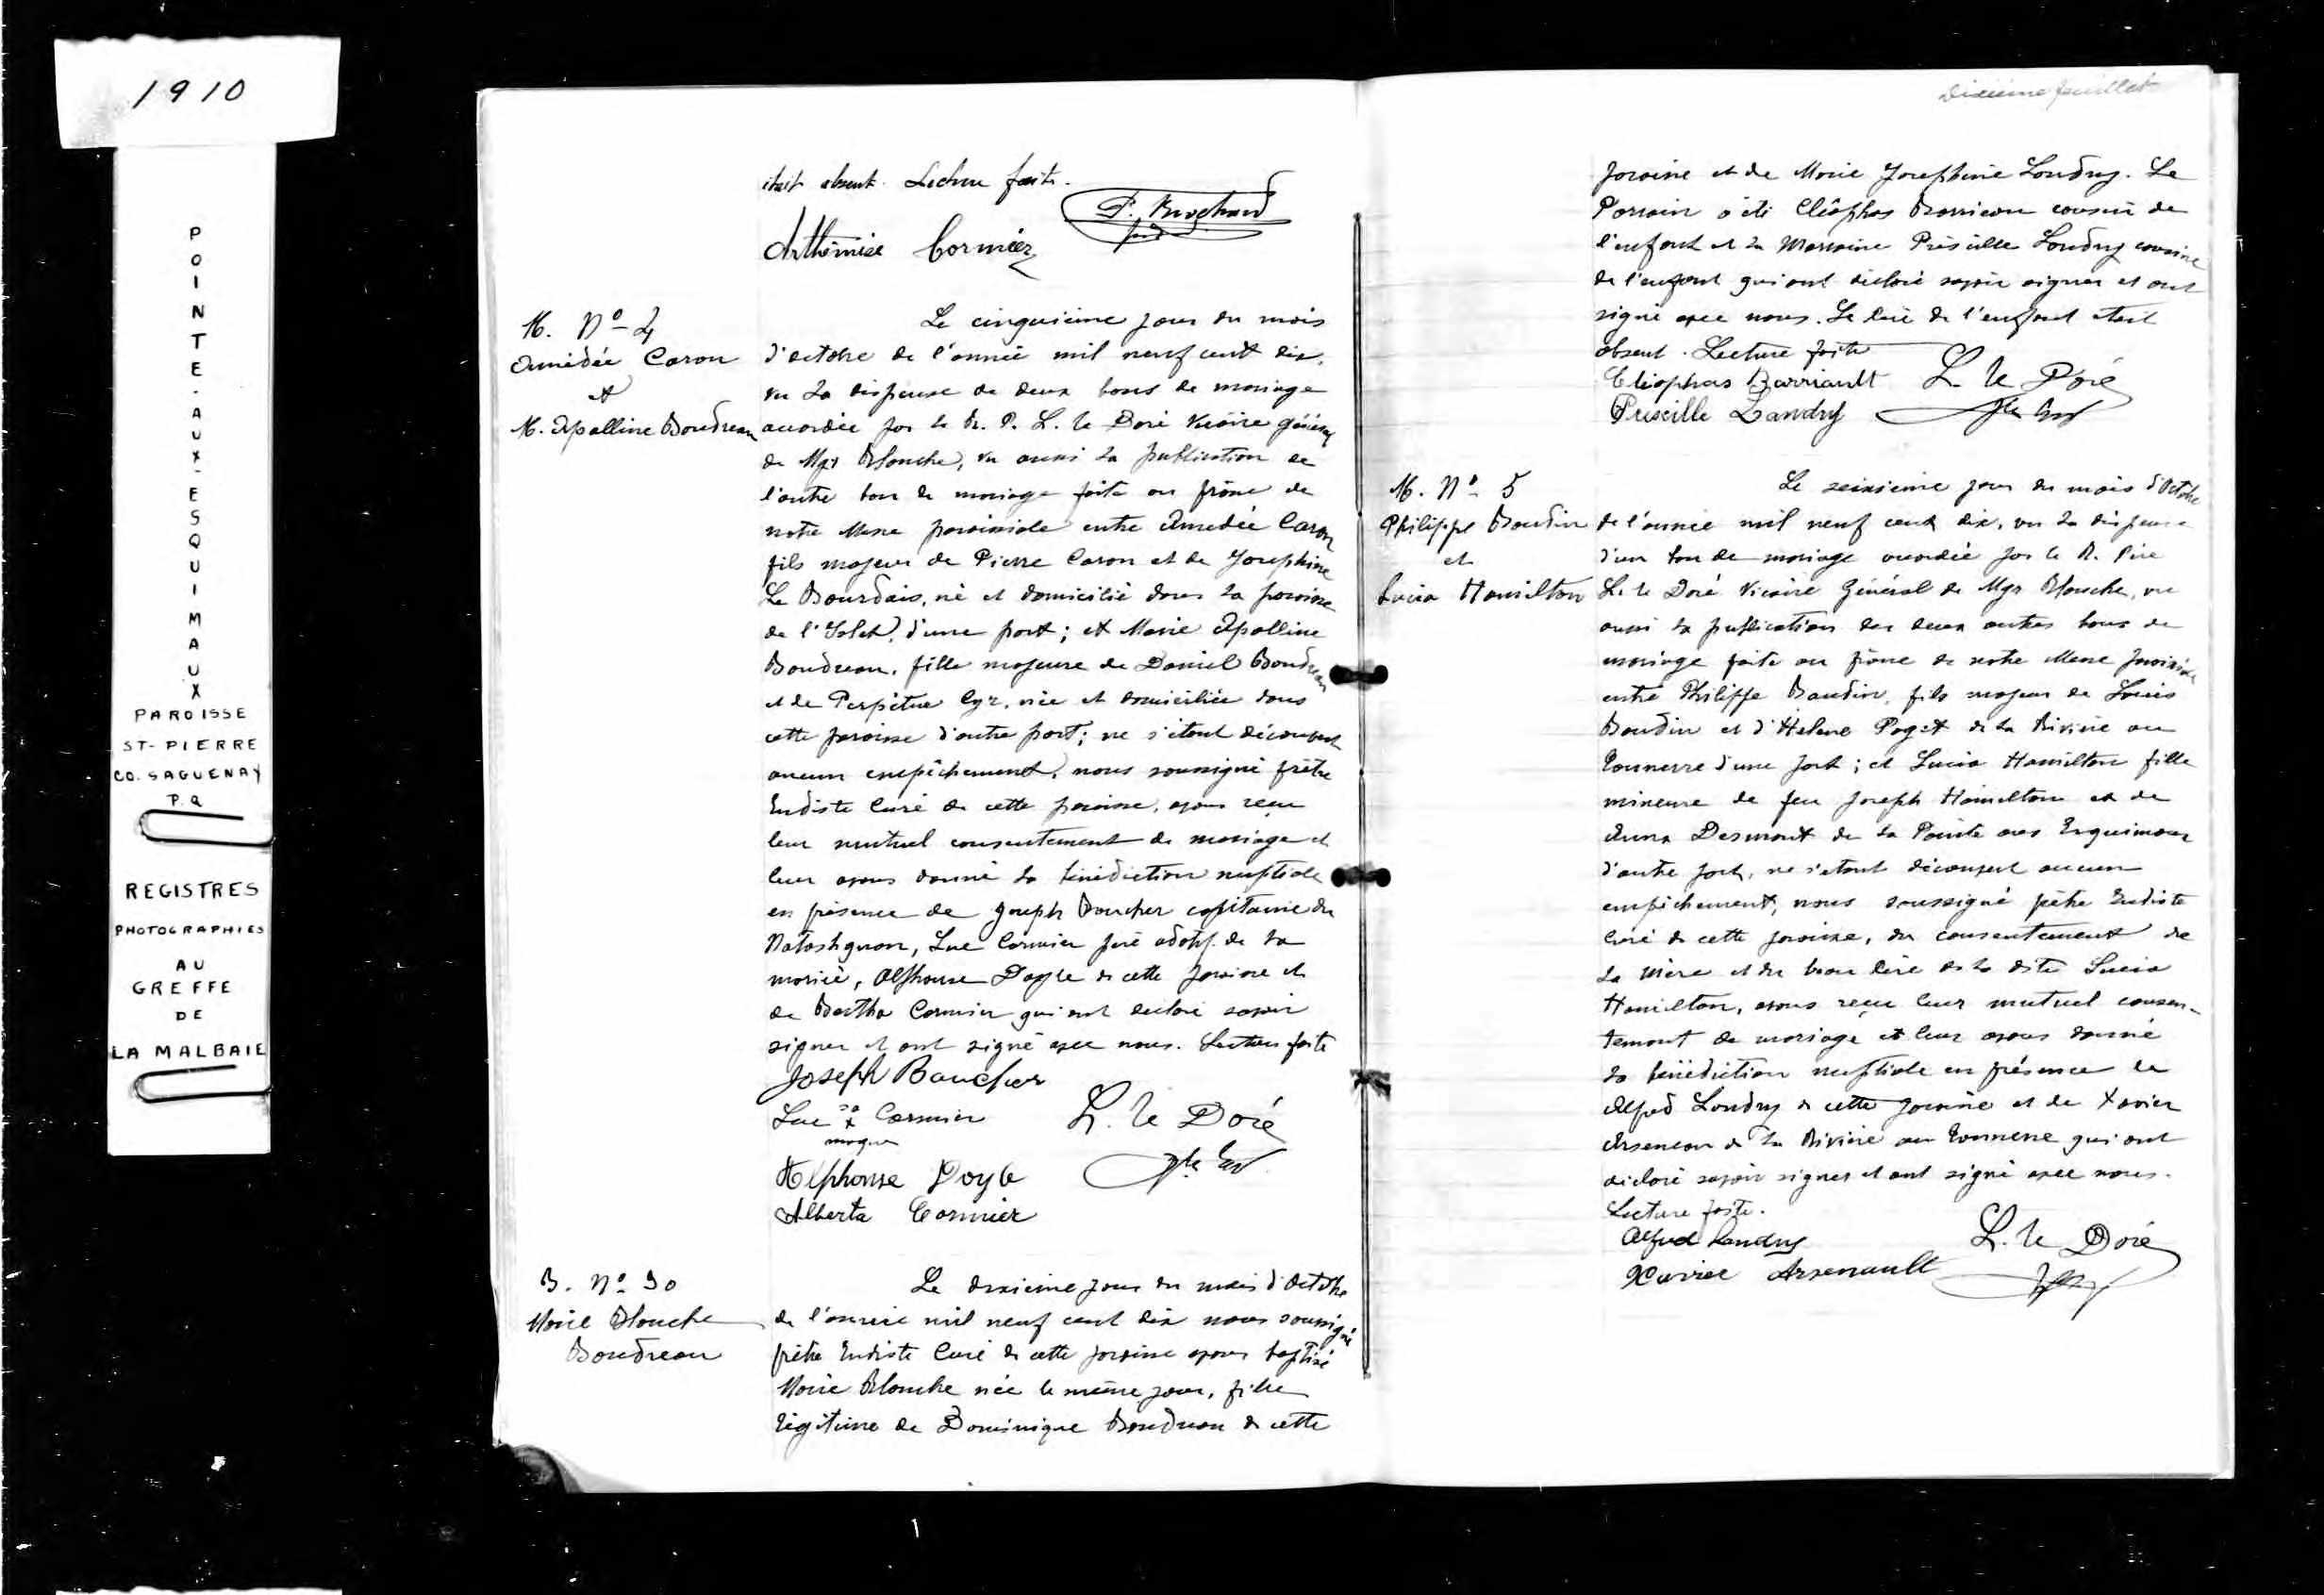 1910
POINTE-AUX-ESQUIMAUX
PAROISSE
ST-PIERRE
CO. SAGUENAY
P.Q
REGISTRES
PHOTOGRAPHIES
AU
GREFFE
DE
LA MALBAIE
était absent. Lecture faite.
Arthémise Cormier
M. No 4
Amédée Caron
et
M. Apolline Boudreau
Le cinquième jour du mois
d'octobre de l'année mil neuf cent dix,
vu la dispense de deux bans de mariage
accordée par le R. P. L. le Doré Vicaire général
de Mgr Blanche, vu aussi la publication de
l'autre ban de mariage faite au prône de
notre Messe paroissiale entre Amedée Caron
fils majeur de Pierre Caron et de Josephine
Le Bourdais, né et domicilié dans la paroisse
de l'Islet, d'une part; et Marie Apolline
Boudreau, fille majeure de Daniel Boudreau
et de Perpétue Cyr, née et domiciliée dans
cette paroisse d'autre part; ne s'étant découvert
aucun empêchement, nous soussigné prêtre
Eudiste Curé de cette paroisse, avons reçu
leur mutuel consentement de mariage et
leur avons donné la bénédiction nuptiale
en présence de Joseph Boucher capitaine du
Natashquan, Luc Cormier père adoptif de la
mariée, Alphonse Doyle de cette paroisse et
de Bertha Cormier qui ont declaré savoir
signer et ont signé avec nous. Lecture faite
Joseph Boucher
Luc sa x Cormier
marque
L. le Doré
Alphonse Doyle
Alberta Cormier
B. No 30
Marie Blanche
Boudreau
Le dixième jour du mois d'Octobre
de l'année mil neuf cent dix nous soussigné
prêtre Eudiste Curé de cette paroisse avons baptisé
Marie Blanche née le même jour, fille
légitime de Dominique Boudreau de cette
Dixième feuillet
paroisse et de Marie Josephine Landry. Le
Parrain a été Cléophas Barrieau cousin de
l'enfant et la Marraine Préscille Landry cousine
de l'enfant qui ont déclaré savoir signer et ont
signé avec nous. Le Père de l'enfant était
absent. Lecture faite
Cléophas Barriault
L. le Doré
Priscille Landry
M. No 5
Philippe Baudin
et
Lucia Hamilton
Le seixième jour du mois d'Octobre
de l'année mil neuf cent dix, vu la dispense
d'un ban de mariage accordée par le R. Père
L. le Doré Vicaire Général de Mgr Blanche, vu
aussi la publication des deux autres bans de
mariage faite au prône de notre Messe paroissiale
entre Philippe Baudin, fils majeur de Louis
Baudin et d'Helene Paget de la Rivière au
Tonnerre d'une part; et Lucia Hamilton fille
mineure de feu Joseph Hamilton et de
Anna Desmont de la Pointe aux Esquimaux
d'autre part, ne s'étant découvert aucun
empêchement, nous soussigné prêtre Eudiste
Curé de cette paroisse, du consentement de
la Mère et du beau Père de la dite Lucia
Hamilton, avons reçu leur mutuel consen-
tement de mariage et leur avons donné
la bénédiction nuptiale en présence de
Alfred Landry de cette paroisse et de Xavier
Arseneau de la Rivière au Tonnerre qui ont
déclaré savoir signer et ont signé avec nous.
Lecture faite.
Alfred Landry
L. le Doré
Xavier Arsenault